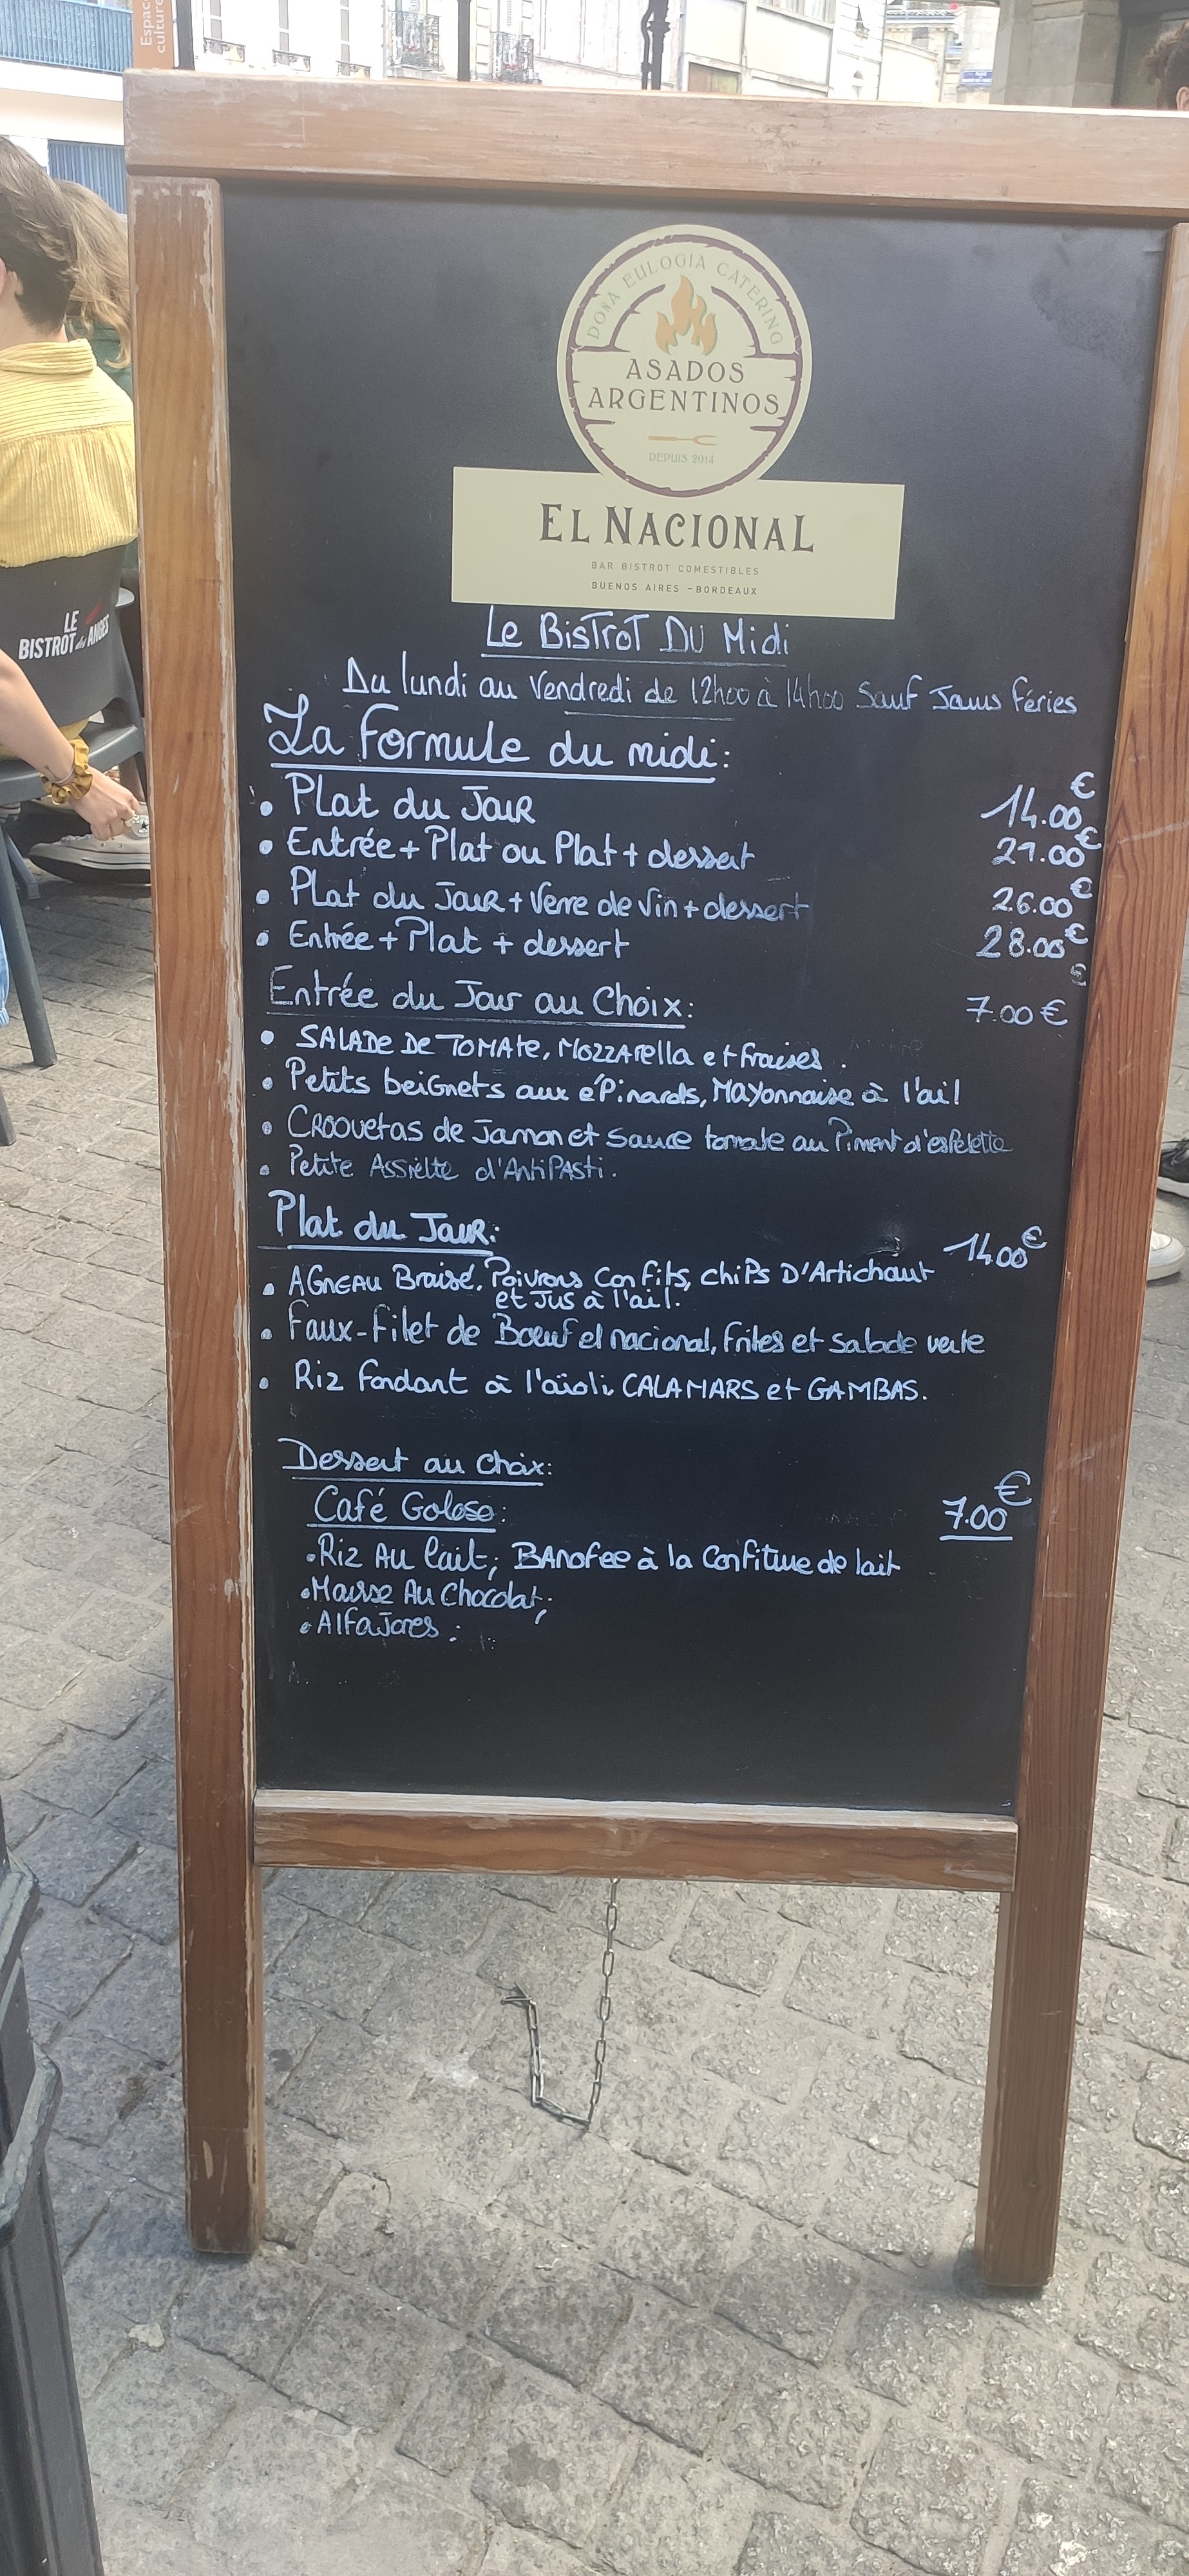 Espace
culture
DOÑA EULOGIA CATERING
ASADOS
ARGENTINOS
DEPUIS 2014
EL NACIONAL
BAR BISTROT COMESTIBLES
BUENOS AIRES - BORDEAUX
LE
BISTROT des ANGES
Le BisTroT Du Midi
Du lundi au Vendredi de 12h00 à 14h00 Sauf Jours Féries
La Formule du midi:
• PLat du JouR 14.00€
• Entrée + Plat ou Plat + dessert 21.00€
• Plat du JouR + Verre de Vin + dessert 26.00€
• Entrée + Plat + dessert 28.00€
€
Entrée du Jour au Choix: 7.00 €
• SALADE DE TOMAte, MozzArella et fraises.
• Petits beiGnets aux éPinards, MAyonnaise à l'ail
• CROQuetas de Jamon et Sauce tomate au Piment d'esPelette
• Petite Assiette d'AntiPAsti.
Plat du JouR: 14.00€
• AGneau Braisé, Poivrons Confits, chiPs D'Artichaut
et Jus à l'ail.
• Faux-Filet de Bœuf el nacional, frites et salade verte
• Riz fondant à l'aïoli, CALAMARS et GAMBAS.
Dessert au Choix:
Café Goloso: 7.00 €
• Riz Au lait; BAnofee à la Confiture de lait
• Mousse Au Chocolat;
• AlfaJores :